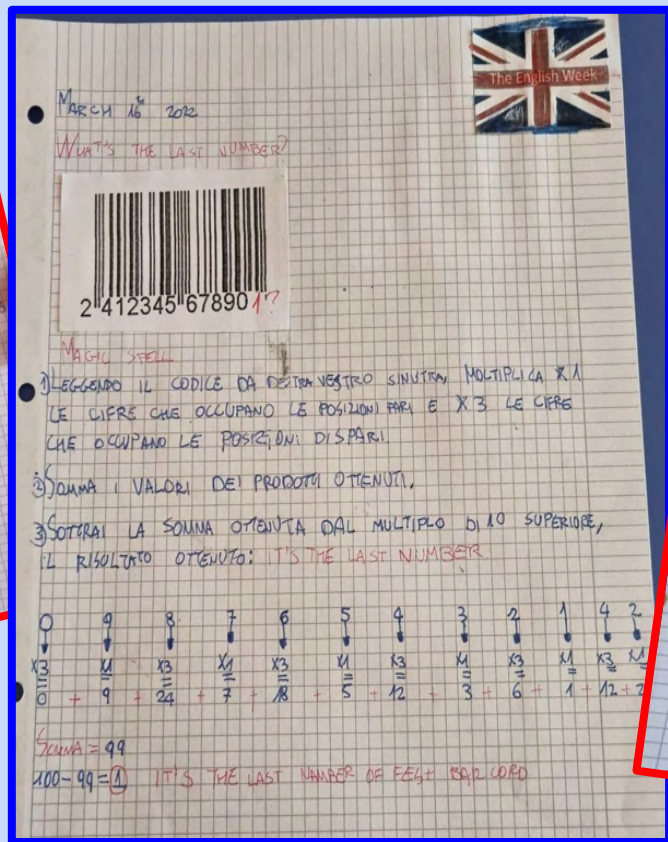 The English Week
MARCH 16th 2022
WHAT'S THE LAST NUMBER?
2 412345 67890 1?
MAGIC SPELL
1) LEGGENDO IL CODICE DA DETRA VESTRO SINISTRA, MOLTIPLICA X1
LE CIFRE CHE OCCUPANO LE POSIZIONI PARI E X3 LE CIFRE
CHE OCCUPANO LE POSIZIONI DISPARI.
2) SOMMA I VALORI DEI PRODOTTI OTTENUTI.
3) SOTTRAI LA SOMMA OTTENUTA DAL MULTIPLO DI 10 SUPERIORE,
IL RISULTATO OTTENUTO: IT'S THE LAST NUMBER
0 9 8 7 6 5 4 3 2 1 4 2
X3 X1 X3 X1 X3 X1 X3 X1 X3 X1 X3 X1
= = = = = = = = = = = =
0 + 9 + 24 + 7 + 18 + 5 + 12 + 3 + 6 + 1 + 12 + 2
SOMMA = 99
100-99=1 IT'S THE LAST NAMBER OF BAR CORD